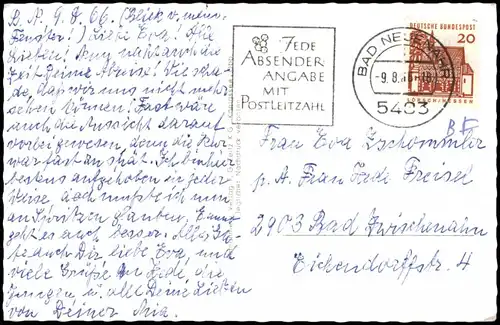 B. N. 9. 8. 66. (Blick v. mein.
Fenster!) Liebe Eva! Alle
Lieben! Nun naht auch die
Zeit Deine Abreise! Wie scha-
de, dass wir uns nicht mehr
sehen können! Fast wäre
auch die Aussicht darauf
vorbei gewesen, denn die Kur
war fast an Ich bin hier
bestens aufgehoben in jeder
Weise, doch musste ich nun
an glauben.
geht es auch besser. Alles Gu-
te auch Dir liebe Eva, und
viele Grüße an Jede, die
Jungen, u. all Deine Lieben
von Deiner
JEDE
ABSENDER
ANGABE
MIT
POSTLEITZAHL
BAD NEUENAHR
-9.8.66-18
5483
DEUTSCHE BUNDESPOST
20
LORSCH/HESSEN
Frau Eva Zschommler
p. A. Frau Jede Freisel
2903 Bad Zwischenahn
Eichendorffstr. 4